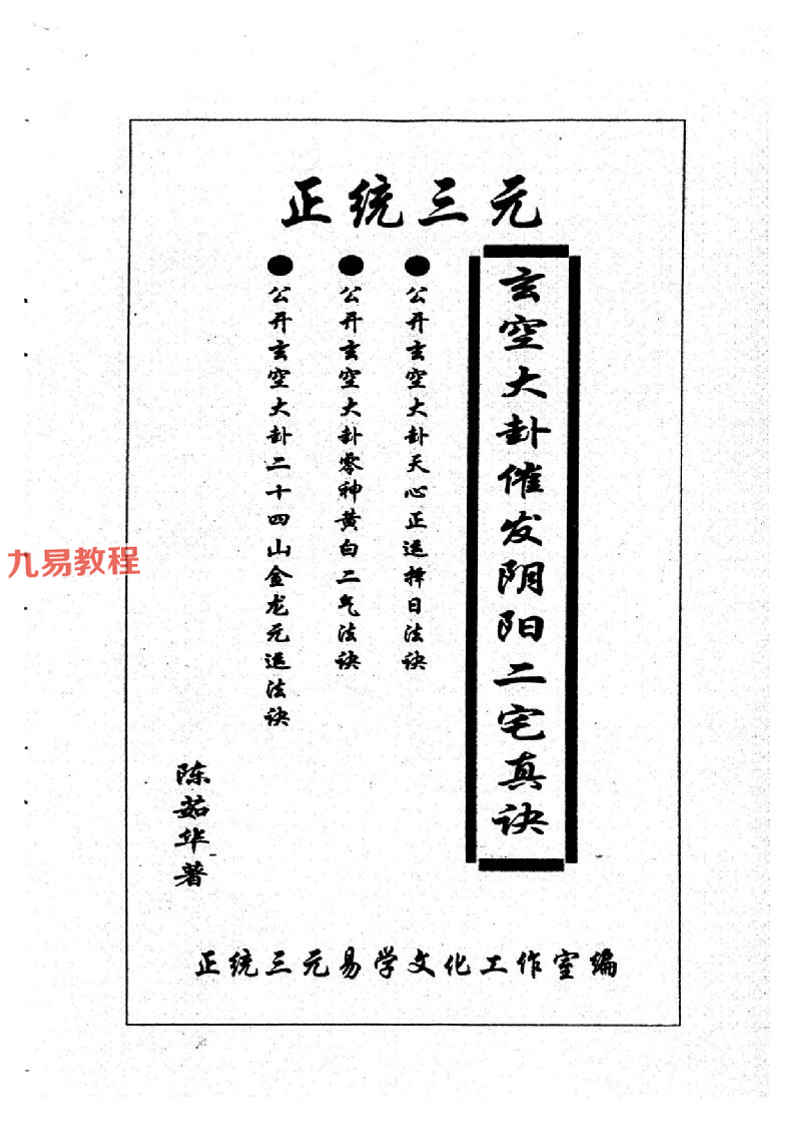 正统三元
玄空大卦催发阴阳二宅真诀
公开玄空大卦天心正运择日法诀
公开玄空大卦零神黄白二气法诀
公开玄空大卦二十四山金龙元运法诀
陈茹华著
正统三元易学文化工作室编
九易教程